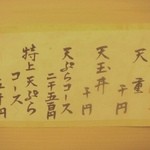 天重
千円
天玉丼
千円
天ぷらコース
二千五百円
特上天ぷら
コース